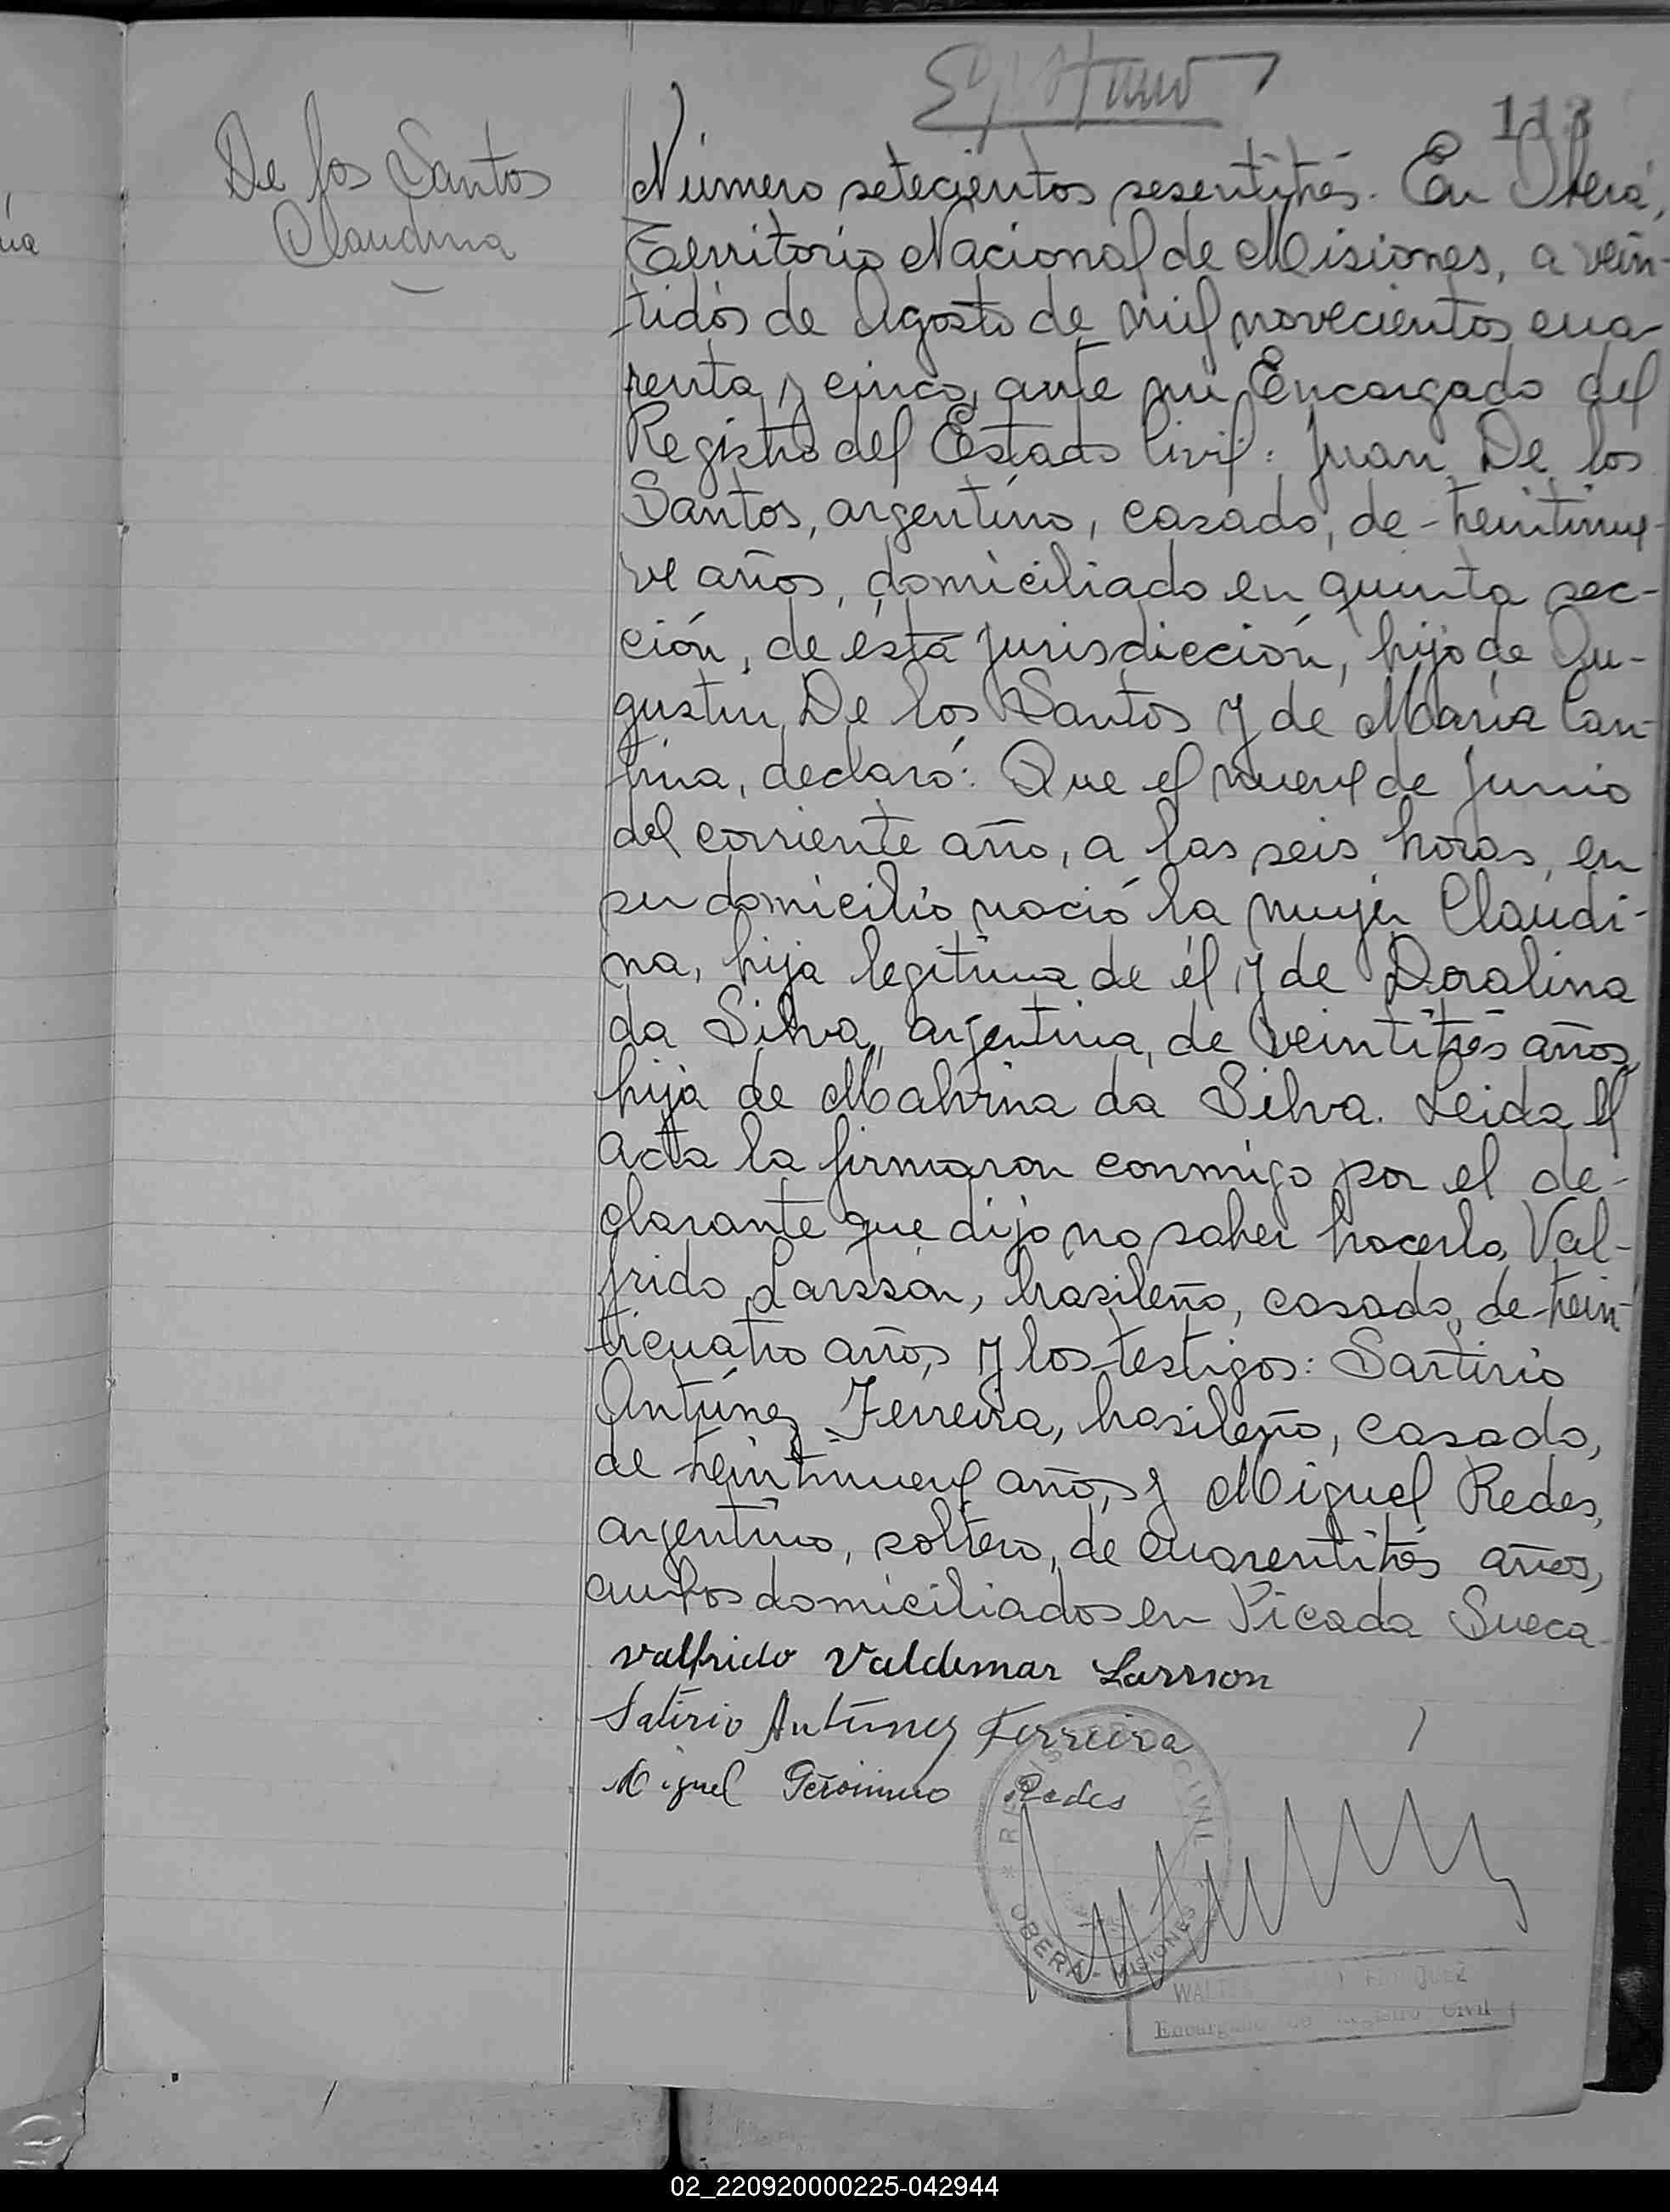 113
De los Santos
Claudina
Número setecientos sesentitrés. En Oberá,
Territorio Nacional de Misiones, a vein-
tidós de Agosto de mil novecientos cua-
renta y cinco, ante mi Encargado del
Registro del Estado Civil: Juan De los
Santos, argentino, casado, de treintinue-
ve años, domiciliado en quinta sec-
ción, de ésta jurisdicción, hijo de Au-
gustin De los Santos y de María Can-
tina, declaró: Que el nueve de Junio
del corriente año, a las seis horas, en
su domicilio nació la mujer Claudi-
na, hija legítima de él y de Doralina
da Silva, argentina, de veintitrés años,
hija de Malvina da Silva. Leida el
acta la firmaron conmigo por el de-
clarante que dijo no saber hacerlo, Val-
frido Larsson, brasileño, casado, de trein-
ticuatro años y los testigos: Sartirio
Antúnez Ferreira, brasileño, casado,
de treintinueve años, y Miguel Redes,
argentino, soltero, de cuarentitrés años,
ambos domiciliados en Picada Sueca.
Valfrido Valdemar Larsson
Satirio Antúnez Ferreira
Miguel Gerónimo Redes
REGISTRO CIVIL
OBERÁ - MISIONES
Encargado de Registro Civil
02_220920000225-042944